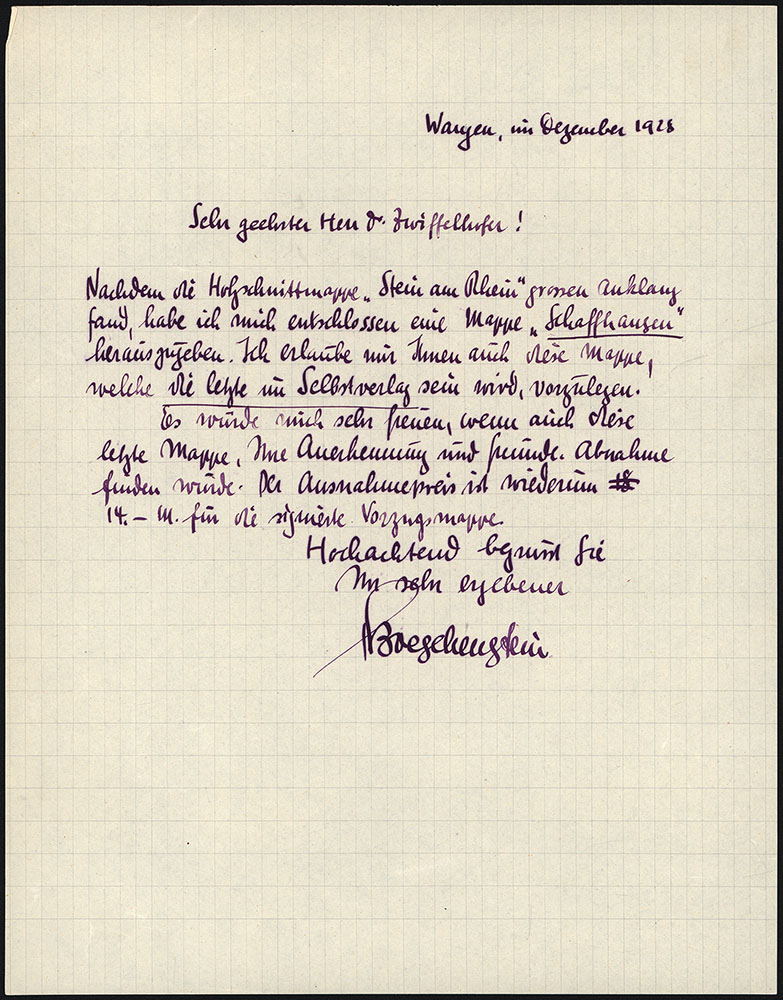 Wangen, im Dezember 1928
Sehr geehrter Herr Dr. Zwiffelhofer!
Nachdem die Holzschnittmappe „Stein am Rhein" grossen Anklang
fand, habe ich mich entschlossen eine Mappe „Schaffhausen"
herauszugeben. Ich erlaube mir Ihnen auch diese Mappe,
welche die letzte im Selbstverlag sein wird, vorzulegen.
Es würde mich sehr freuen, wenn auch diese
letzte Mappe, Ihre Anerkennung und freundl. Abnahme
finden würde. Der Ausnahmepreis ist wiederum
14.– M. für die signierte Vorzugsmappe.
Hochachtend begrüsst Sie
Ihr sehr ergebener